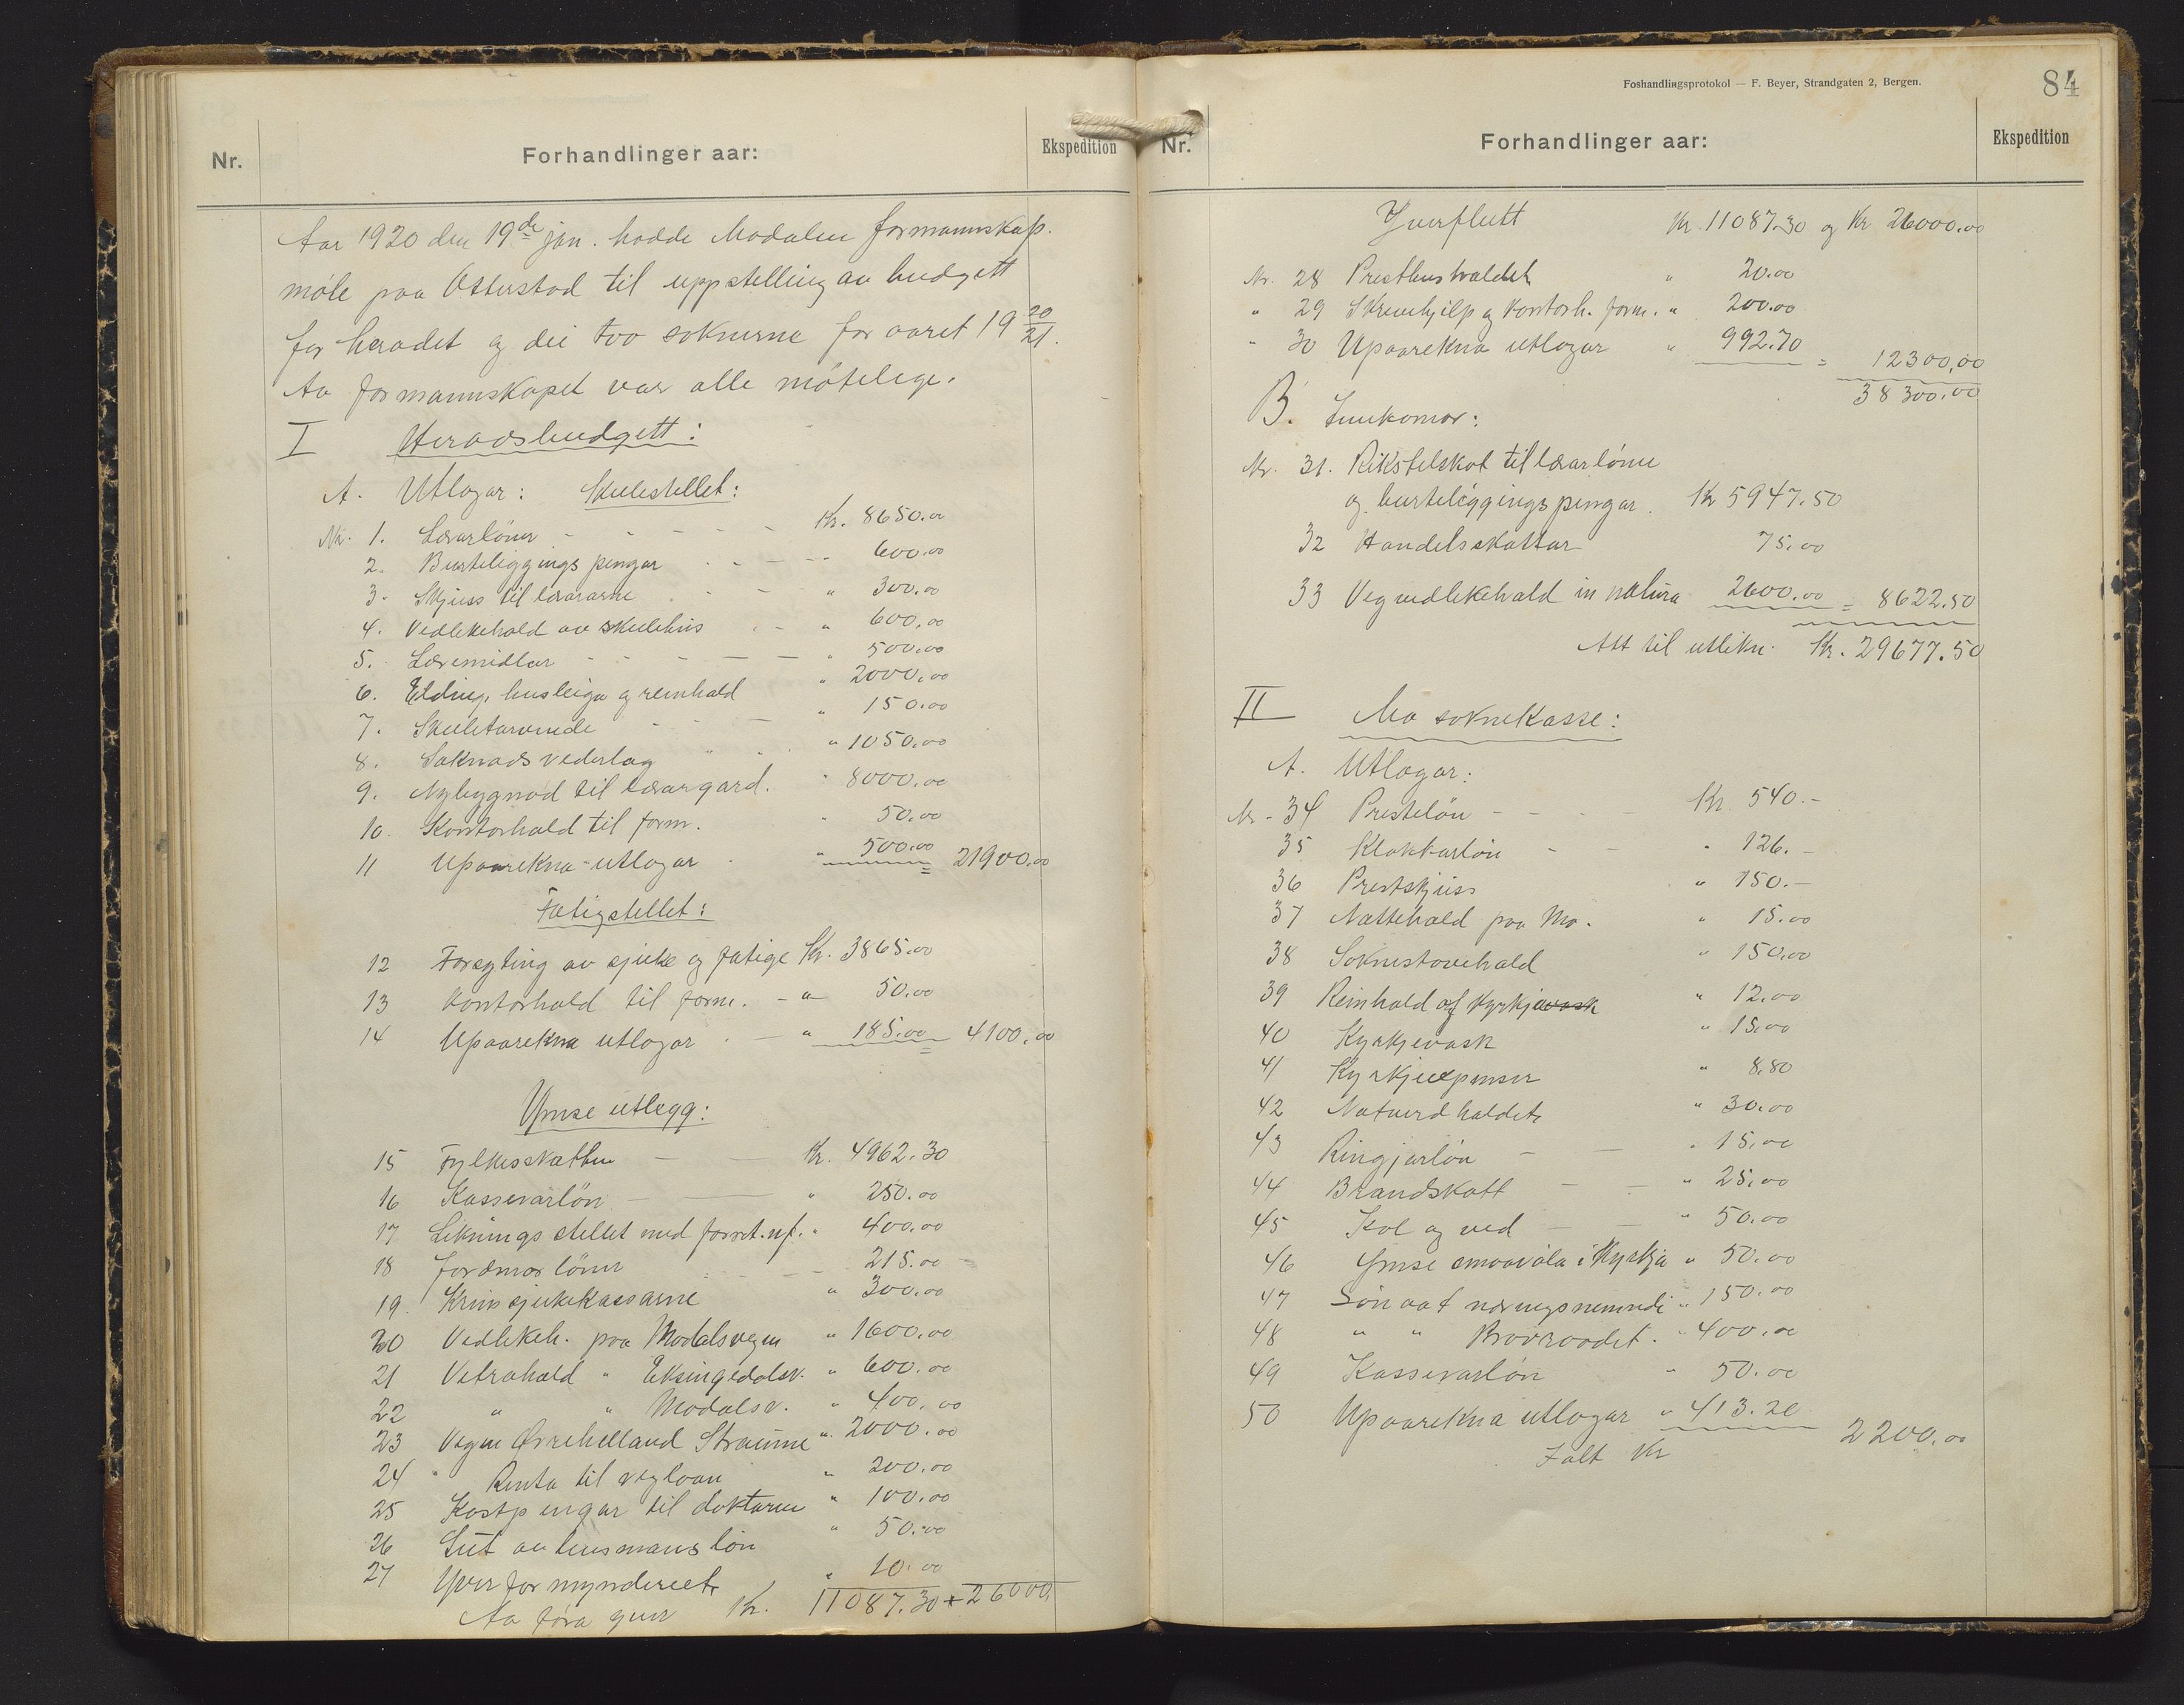 Nr.
Forhandlinger aar:
Ekspedition
Aar 1920 den 19de jan. hadde Modalen formannskap.
møte paa Otterstad til uppstelling av budgett
for heradet og dei tvo soknerne for aaret 19 20/21.
Av formannskapet var alle møtelege.
I Heradsbudgett:
A. Utlogar: Skulestellet:
Nr. 1. Lærarløner - - - - Kr. 8650.00
2. Burteliggings pengar - - - - 600.00
3. Skjuss til lærararne - - " 300.00
4. Vedlikehald av skulehus - - " 600.00
5. Læremidlar - - - - - " 500.00
6. Elding, husleiga og reinhald " 2000.00
7. Skuletarvende - - - " 150.00
8. Saknads vederlag " . . " 1050.00
9. Nybygnad til lærargard. " 8000.00
10. Kontorhald til form. " 50.00
11 Upaarekna utlogar . " 500.00 = 21900.00
Fatigstellet:
12 Forsyting av sjuke og fatige Kr. 3865.00
13 Kontorhald til form. - " 50.00
14 Upaarekna utlogar . - " 185.00 = 4100.00
Ymse utlegg:
15 Fylkesskatten - - Kr. 4962.30
16 Kassevarløn - - " 250.00
17 Liknings stellet med forret.nf. " 400.00
18 Jordmorløner - - - 215.00 -
19. Krinssjukekassarne " 300.00
20 Vedlikeh. paa Modalsvegen " 1600.00
21 Vetrahald " Eksingedalsv. " 600.00
22 " " Modalsv. " 400.00
23 Vegen Øvrehelland Straume " 2000.00
24 " Renta til veglaan " 200.00
25 Kostpengar til doktaren " 100.00
26 Lut av lensmansløn " 50.00
27 Yverformynderiet " 10.00
Aa føra yver Kr. 11087.30 + 26000.
Foshandlingsprotokol — F. Beyer, Strandgaten 2, Bergen.
84
Nr.
Forhandlinger aar:
Ekspedition
Yverflutt Kr. 11087.30 og Kr 26000.00
Nr. 28 Presthushaldet " 20.00
" 29 Skrivehjelp og kontorh. form. " 200.00
" 30 Upaarekna utlogar " 992.70 = 12300,00
38300.00
B. Innkomor:
Nr. 31. Rikstelskot til lærarløner
og burteliggingspengar. Kr 5947.50
32 Handelsskattar 75.00
33 Vegvedlikehald in natura 2600.00 = 8622.50
Att til utlikn. Kr. 29677.50
II Mo soknekasse:
A. Utlogar:
Nr. 34 Presteløn - - - - Kr. 540.-
35 Klokkarløn - - " 126.-
36 Prestskjuss " 150.-
37 Nattehald paa Mo. " 15.00
38 Soknestovehald " 150.00
39 Reinhald af kyrkjevask " 12.00
40 Kyrkjevask " 15.00
41 Kyrkjeexpenser " 8.80
42 Natverdhaldet " 30.00
43 Ringjarløn - - " 15.00
44 Brandskatt - - " 25.00
45 Kol og ved - - " 50.00
46 Ymse smaavøla i kyrkja " 50.00
47 Løn aat næringsnemndi " 150.00
48 " " Brovraadet. " 400.00
49 Kassevarløn " 50.00
50 Upaarekna utlogar " 413.20
Ialt Kr 2200.00